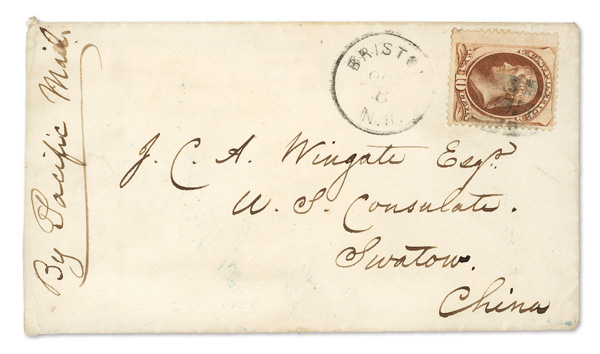 By Pacific Mail.
BRIST
8
N.H.
J. C. A. Wingate Esqr.
U. S. Consulate.
Swatow.
China